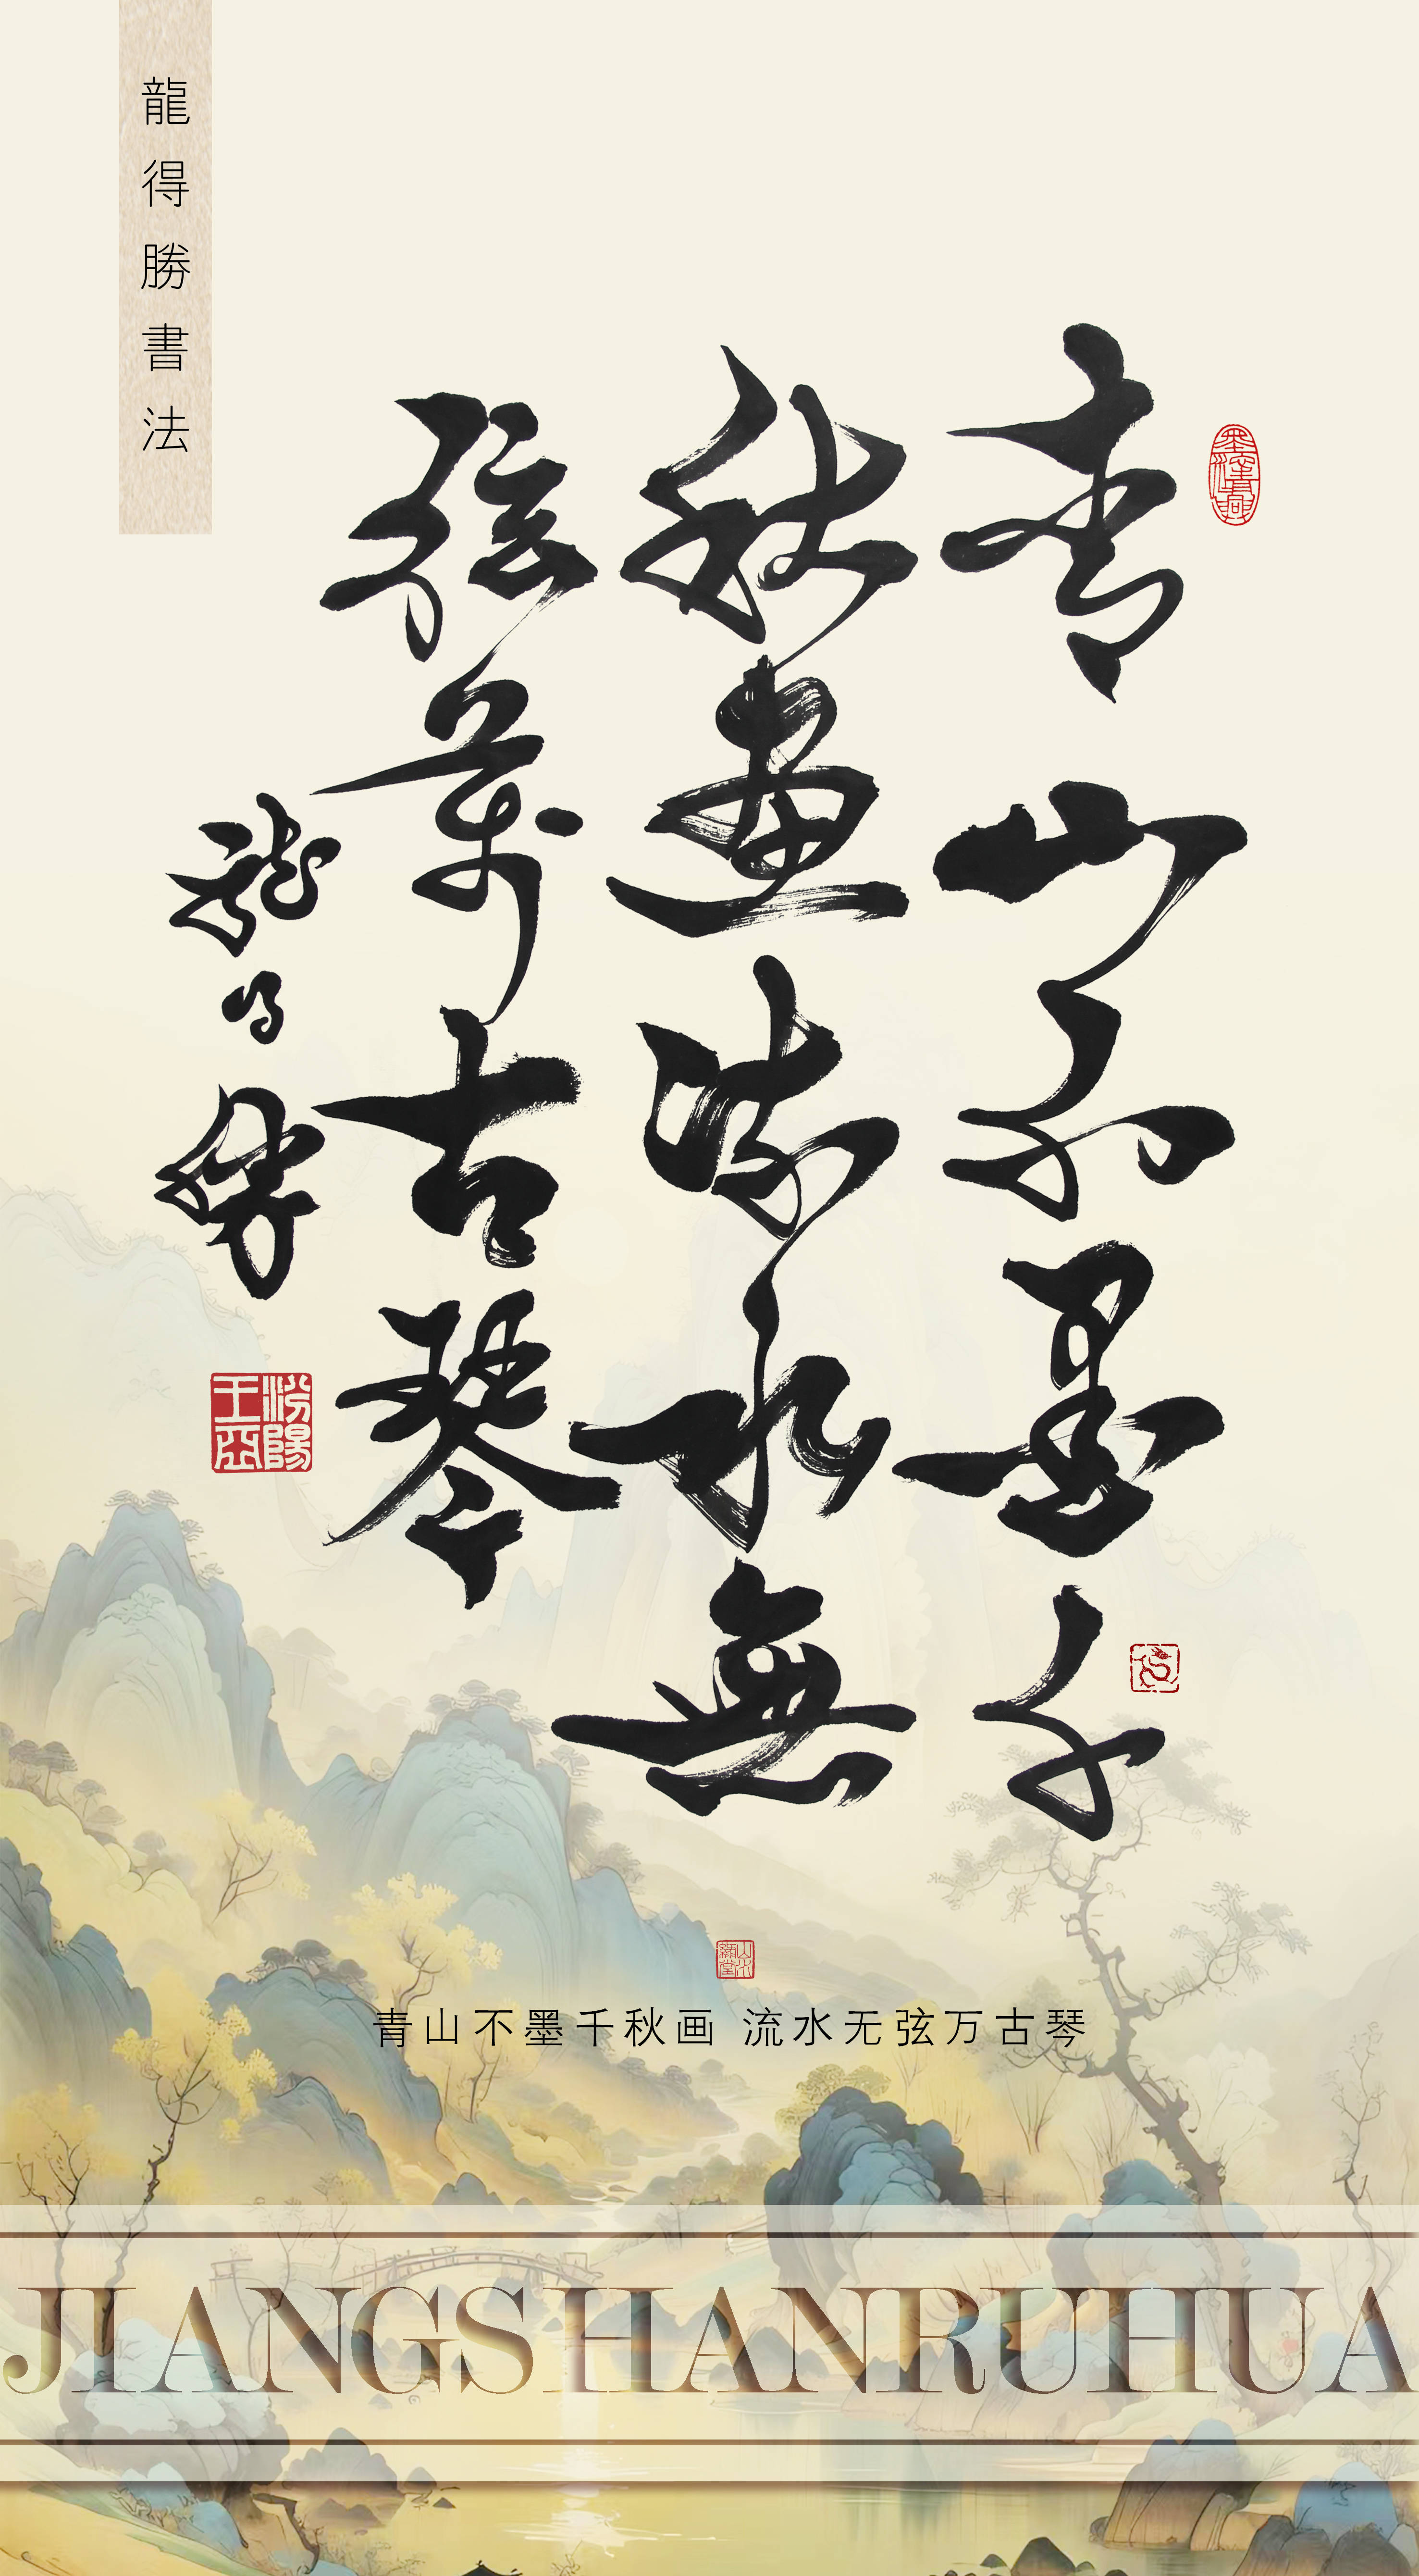 龍得勝書法
青山不墨千
秋画流水無
弦萬古琴
龍得勝
汾陽
王裔
山水
青山不墨千秋画 流水无弦万古琴
JIANGSHANRUHUA